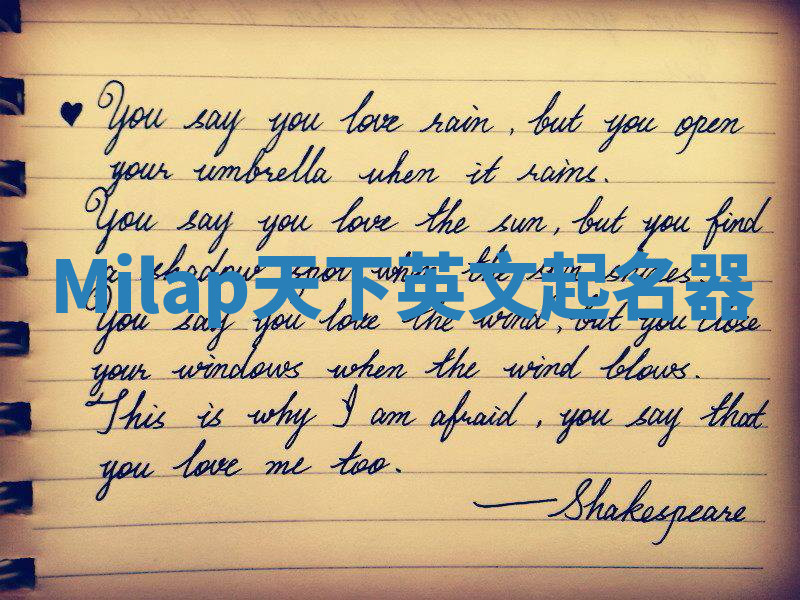 ♥ You say you love rain, but you open
your umbrella when it rains.
You say you love the sun, but you find
a shadow spot when the sun shines.
Milap天下英文起名器
You say you love the wind, but you close
your windows when the wind blows.
This is why I am afraid, you say that
you love me too.
—Shakespeare